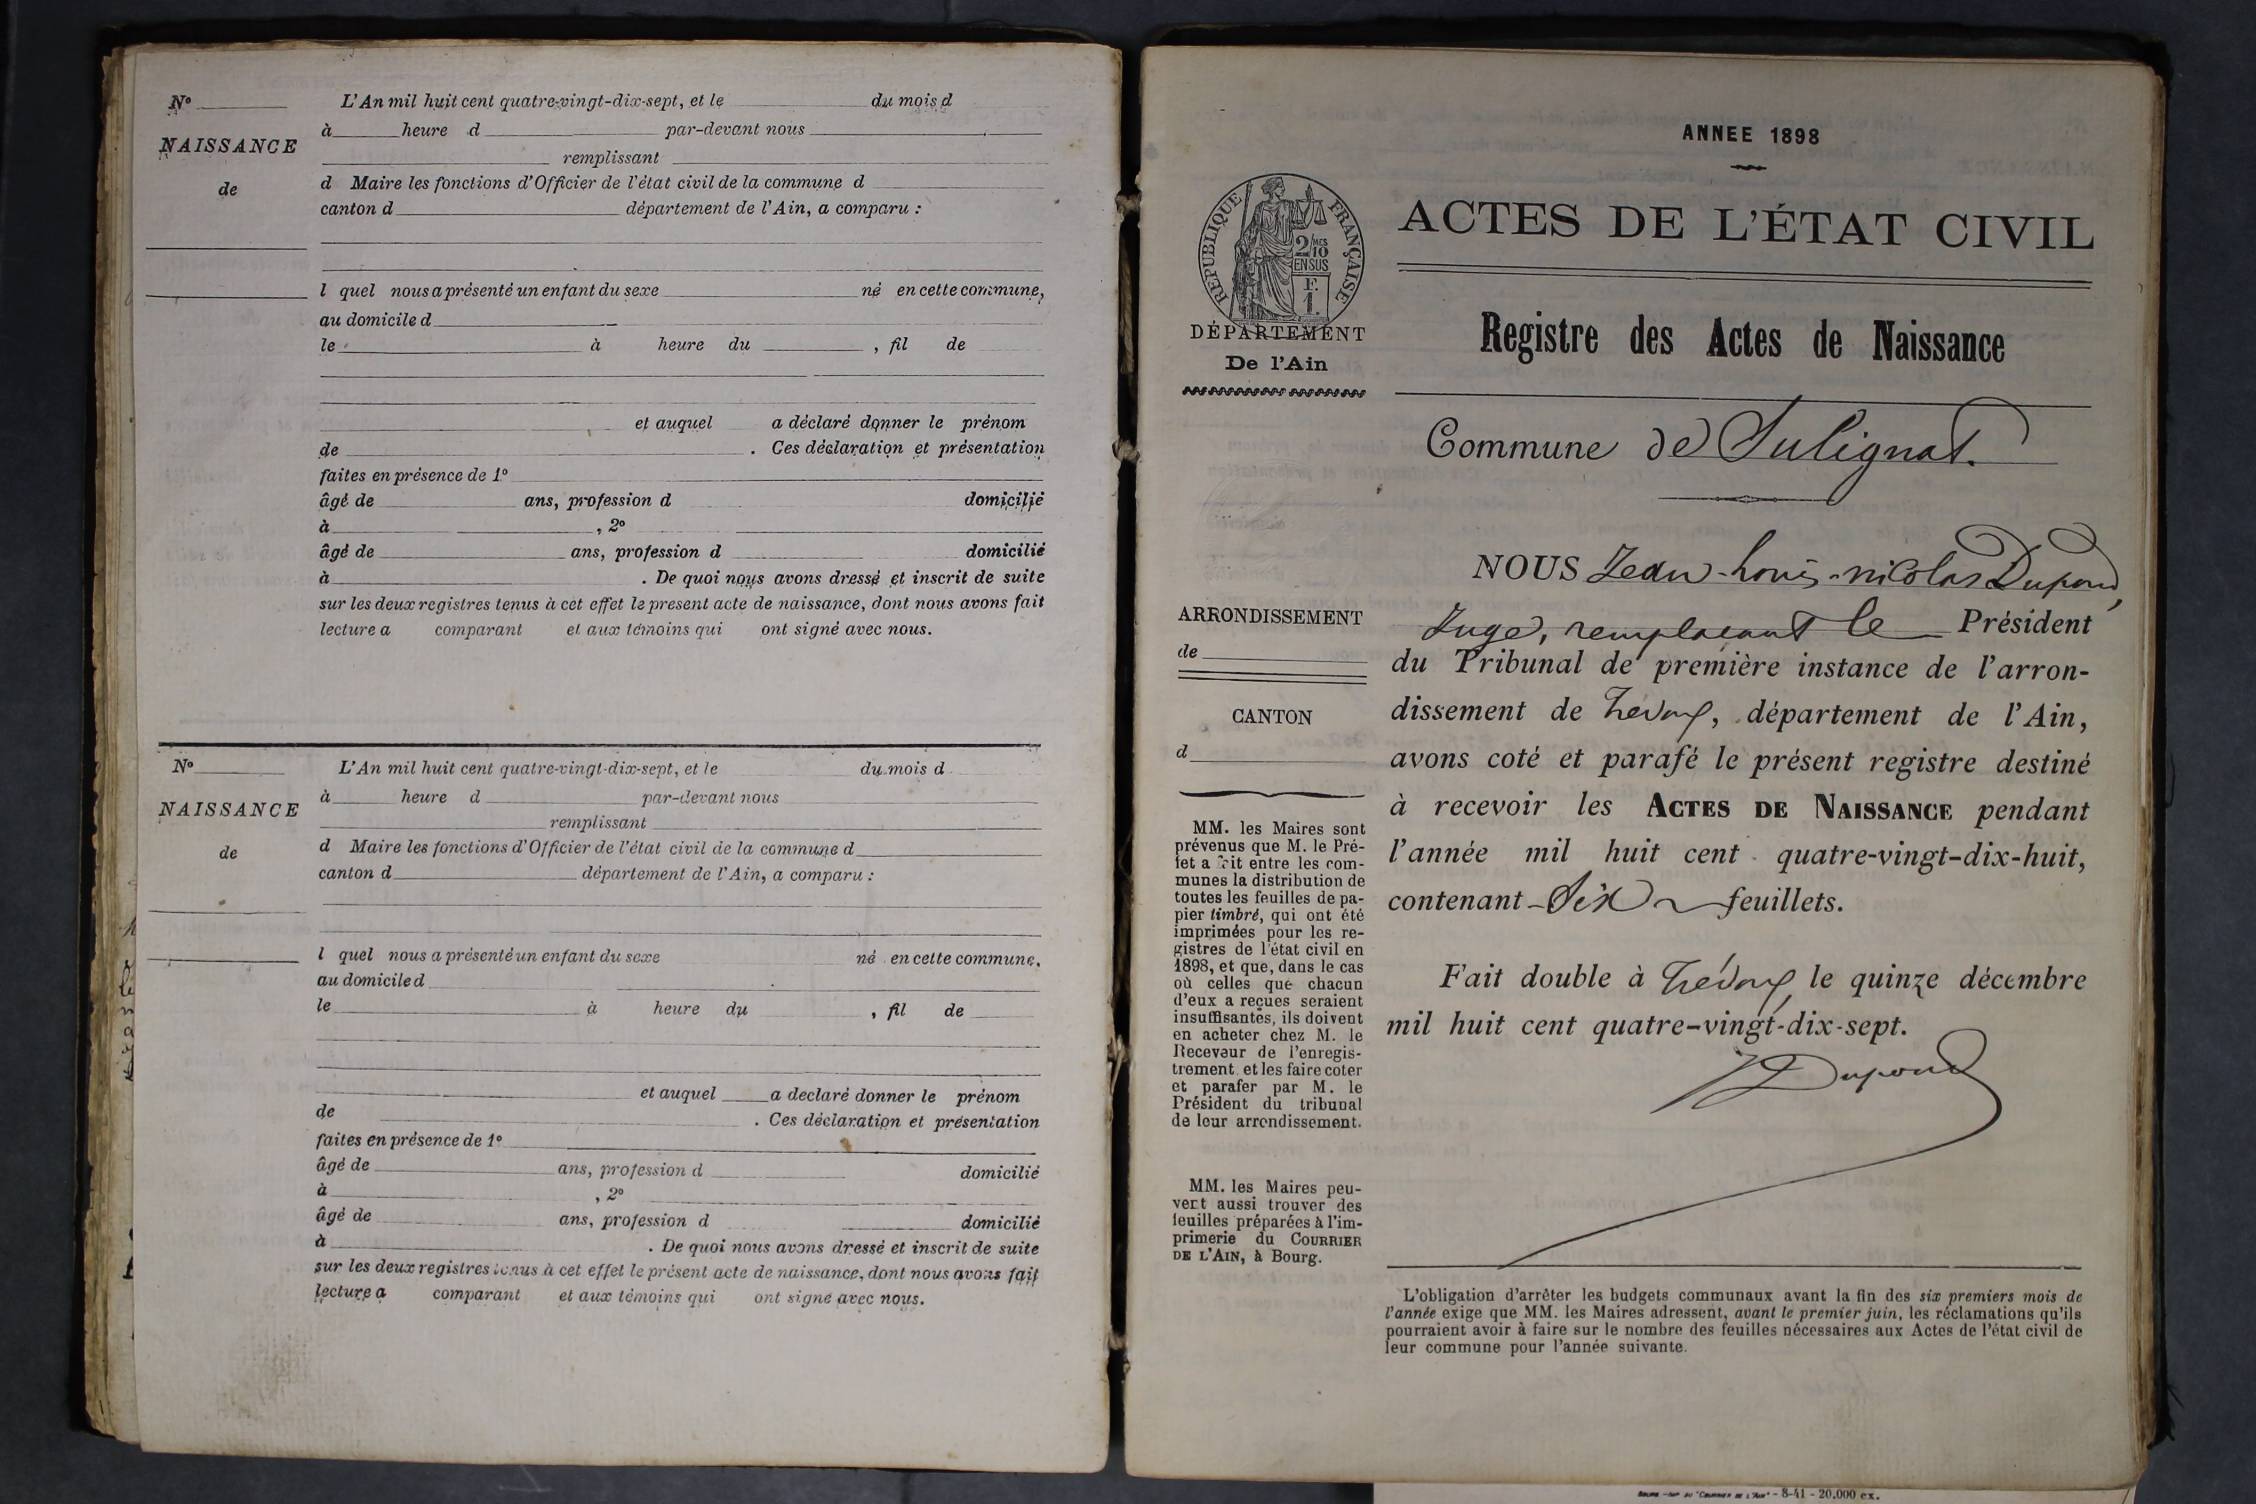 N°
NAISSANCE
de
L'An mil huit cent quatre-vingt-dix-sept, et le du mois d
à heure d par-devant nous
remplissant
d Maire les fonctions d'Officier de l'état civil de la commune d
canton d département de l'Ain, a comparu :
l quel nous a présenté un enfant du sexe né en cette commune,
au domicile d
le à heure du , fil de
et auquel a déclaré donner le prénom
de . Ces déclaration et présentation
faites en présence de 1°
âgé de ans, profession d domicilié
à , 2°
âgé de ans, profession d domicilié
à . De quoi nous avons dressé et inscrit de suite
sur les deux registres tenus à cet effet le present acte de naissance, dont nous avons fait
lecture a comparant et aux témoins qui ont signé avec nous.
N°
NAISSANCE
de
L'An mil huit cent quatre-vingt-dix-sept, et le du mois d
à heure d par-devant nous
remplissant
d Maire les fonctions d'Officier de l'état civil de la commune d
canton d département de l'Ain, a comparu :
l quel nous a présenté un enfant du sexe né en cette commune,
au domicile d
le à heure du , fil de
et auquel a declaré donner le prénom
de . Ces déclaration et présentation
faites en présence de 1°
âgé de ans, profession d domicilié
à , 2°
âgé de ans, profession d domicilié
à . De quoi nous avons dressé et inscrit de suite
sur les deux registres tenus à cet effet le présent acte de naissance, dont nous avons fait
lecture a comparant et aux témoins qui ont signé avec nous.
ANNEE 1898
RÉPUBLIQUE FRANÇAISE
2/MES
10
EN SUS
F.
1.
DÉPARTEMENT
De l'Ain
ACTES DE L'ÉTAT CIVIL
Registre des Actes de Naissance
Commune de Sulignat.
NOUS Jean-Louis-Nicolas Dupond,
Juge, remplaçant le Président
du Tribunal de première instance de l'arron-
dissement de Trévoux, département de l'Ain,
avons coté et parafé le présent registre destiné
à recevoir les ACTES DE NAISSANCE pendant
l'année mil huit cent quatre-vingt-dix-huit,
contenant Six feuillets.
Fait double à Trévoux, le quinze décembre
mil huit cent quatre-vingt-dix-sept.
Dupond
ARRONDISSEMENT
de
CANTON
d
MM. les Maires sont
prévenus que M. le Pré-
fet a fait entre les com-
munes la distribution de
toutes les feuilles de pa-
pier timbré, qui ont été
imprimées pour les re-
gistres de l'état civil en
1898, et que, dans le cas
où celles que chacun
d'eux a reçues seraient
insuffisantes, ils doivent
en acheter chez M. le
Receveur de l'enregis-
trement et les faire coter
et parafer par M. le
Président du tribunal
de leur arrondissement.
MM. les Maires peu-
vent aussi trouver des
feuilles préparées à l'im-
primerie du COURRIER
DE L'AIN, à Bourg.
L'obligation d'arrêter les budgets communaux avant la fin des six premiers mois de
l'année exige que MM. les Maires adressent, avant le premier juin, les réclamations qu'ils
pourraient avoir à faire sur le nombre des feuilles nécessaires aux Actes de l'état civil de
leur commune pour l'année suivante.
BOURG — IMP. DU "COURRIER DE L'AIN" - 8-41 - 20.000 ex.